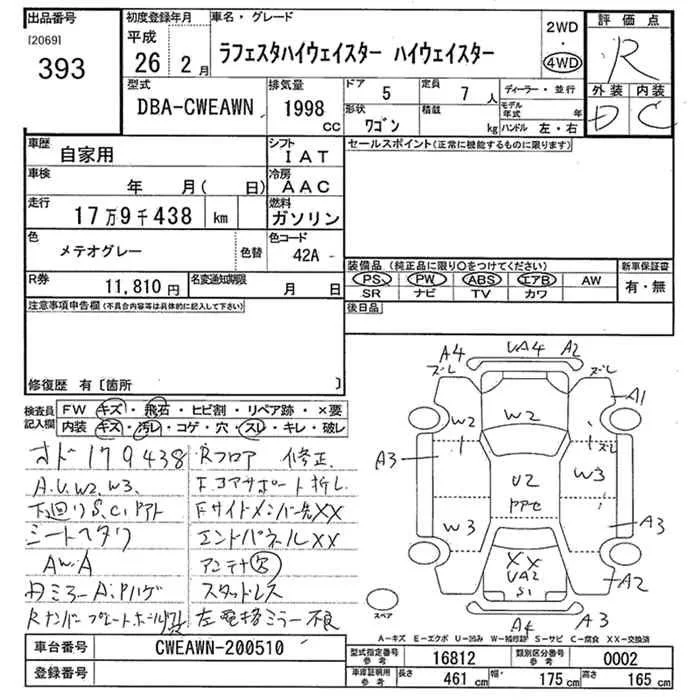 出品番号
[2069]
393
初度登録年月
平成
26 2月
車名・グレード
ラフェスタハイウェイスター ハイウェイスター
2WD
・
4WD
評価点
R
外装 内装
D C
型式
DBA-CWEAWN
排気量
1998
cc
ドア
5
定員
7 人
形状
ワゴン
積載
kg
ディーラー・並行
モデル年式 年
ハンドル 左・右
車歴
自家用
シフト
IAT
車検
年 月( 日)
冷房
AAC
走行
17万9千438 km
燃料
ガソリン
色
メテオグレー
色替
色コード
42A
R券
11,810 円
名変通知期限
月 日
セールスポイント(正常に機能するものに限ります)
装備品(純正品に限り○をつけてください)
PS PW ABS エアB AW
SR ナビ TV カワ
新車保証書
有・無
後日品
注意事項申告欄(不具合内容等は具体的に記入して下さい)
修復歴 有〔箇所 〕
検査員
記入欄
FW キズ・飛石・ヒビ割・リペア跡・×要
内装 キズ・汚レ・コゲ・穴・スレ・キレ・破レ
オド179438
A.U.W2.W3.
下廻りS.C.パテアト
シートヘタリ
AWA
Rフロア 修正
F.コアサポート折レ
Fサイドメンバー先XX
エンドパネルXX
アンテナ欠
スタッドレス
左電格ミラー不良
A4 UA4 A2
ズレ ズレ
A1
W2 W2
ズレ
A3 U2 W3
W3 A3
XX
UA2
S1
A2
A4 A3
スペア
A-キズ E-エクボ U-凹み W-補修跡 S-サビ C-腐食 XX-交換済
車台番号
CWEAWN-200510
登録番号
型式指定番号
参考
16812
類別区分番号
参考
0002
車庫証明用
参考
長さ 461 cm
幅・ 175 cm
高さ 165 cm